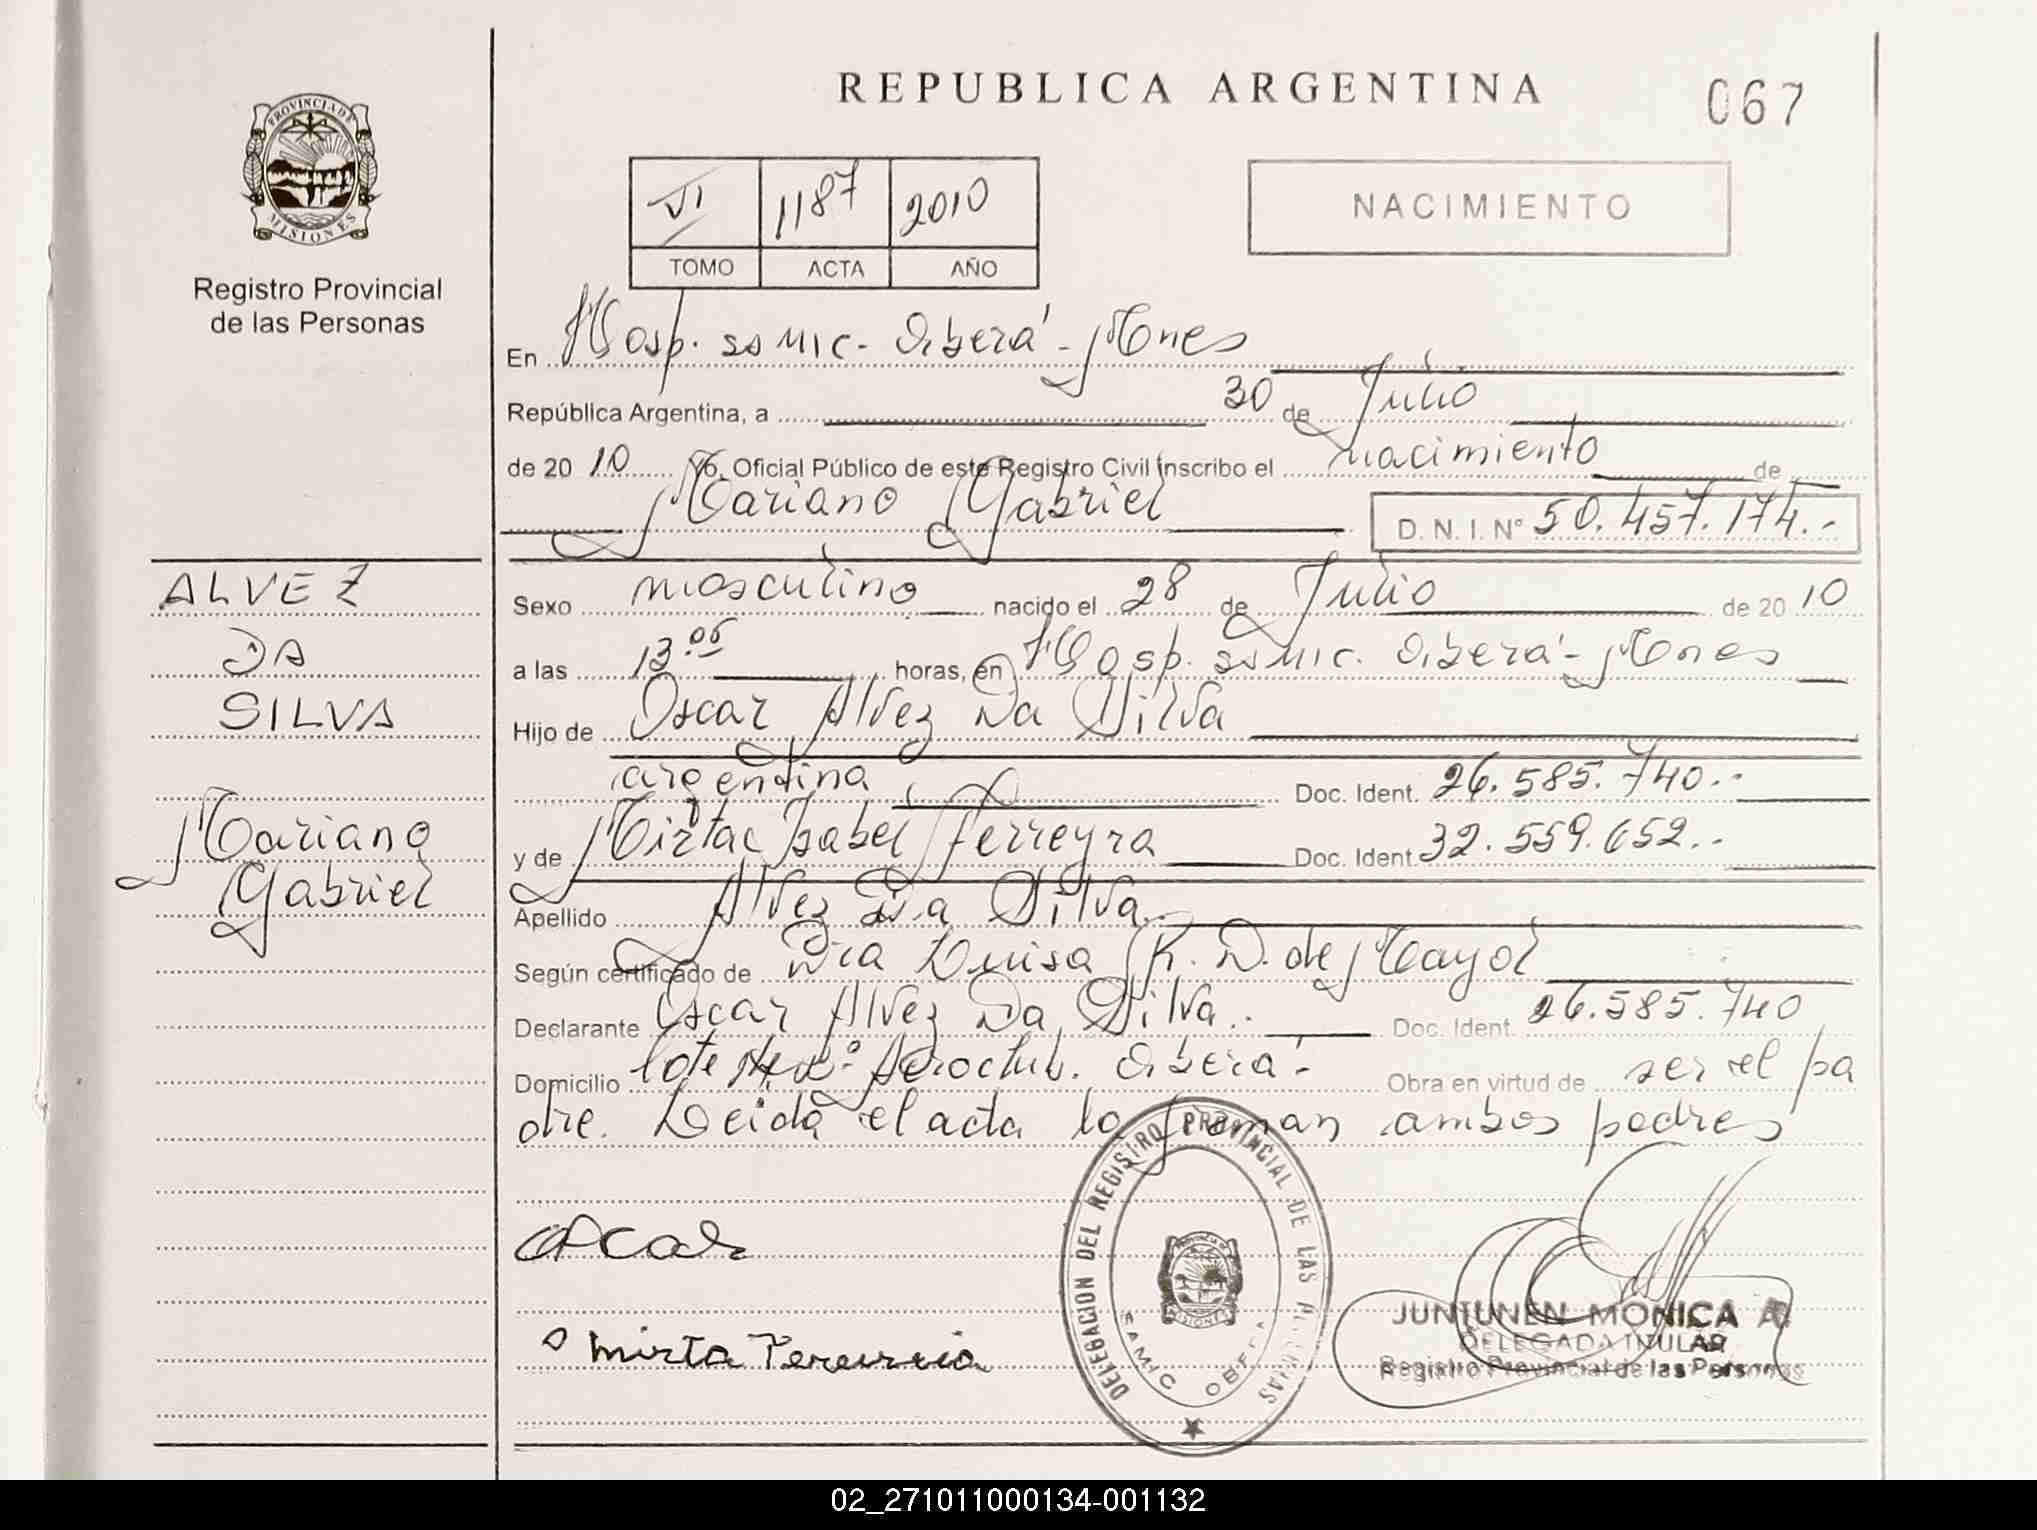 REPUBLICA ARGENTINA
067
PROVINCIA DE
MISIONES
Registro Provincial
de las Personas
VI 1187 2010
TOMO ACTA AÑO
NACIMIENTO
En Hosp. SAMIC. Oberá - Mnes
República Argentina, a 30 de Julio
de 20 10 Yo, Oficial Público de este Registro Civil inscribo el nacimiento de
Mariano Gabriel D. N. I. Nº 50.457.174.-
ALVEZ
DA
SILVA
Mariano
Gabriel
Sexo masculino nacido el 28 de Julio de 20 10
a las 13.05 horas, en Hosp. SAMIC. Oberá - Mnes
Hijo de Oscar Alvez Da Silva
argentina Doc. Ident. 26.585.740.-
y de Mirta Isabel Ferreyra Doc. Ident. 32.559.652.-
Apellido Alvez Da Silva.
Según certificado de Dra Luisa R. D. de Mayol
Declarante Oscar Alvez Da Silva. Doc. Ident. 26.585.740
Domicilio lote Aeroclub. Oberá - Obra en virtud de ser el pa
dre. Leida el acta la firman ambos padres
OSCAR
Mirta Fereireia
DELEGACION DEL REGISTRO PROVINCIAL DE LAS PERSONAS
PROVINCIA DE
MISIONES
SAMIC OBERA
JUNTUNEN MONICA A.
DELEGADA TITULAR
Registro Provincial de las Personas
02_271011000134-001132